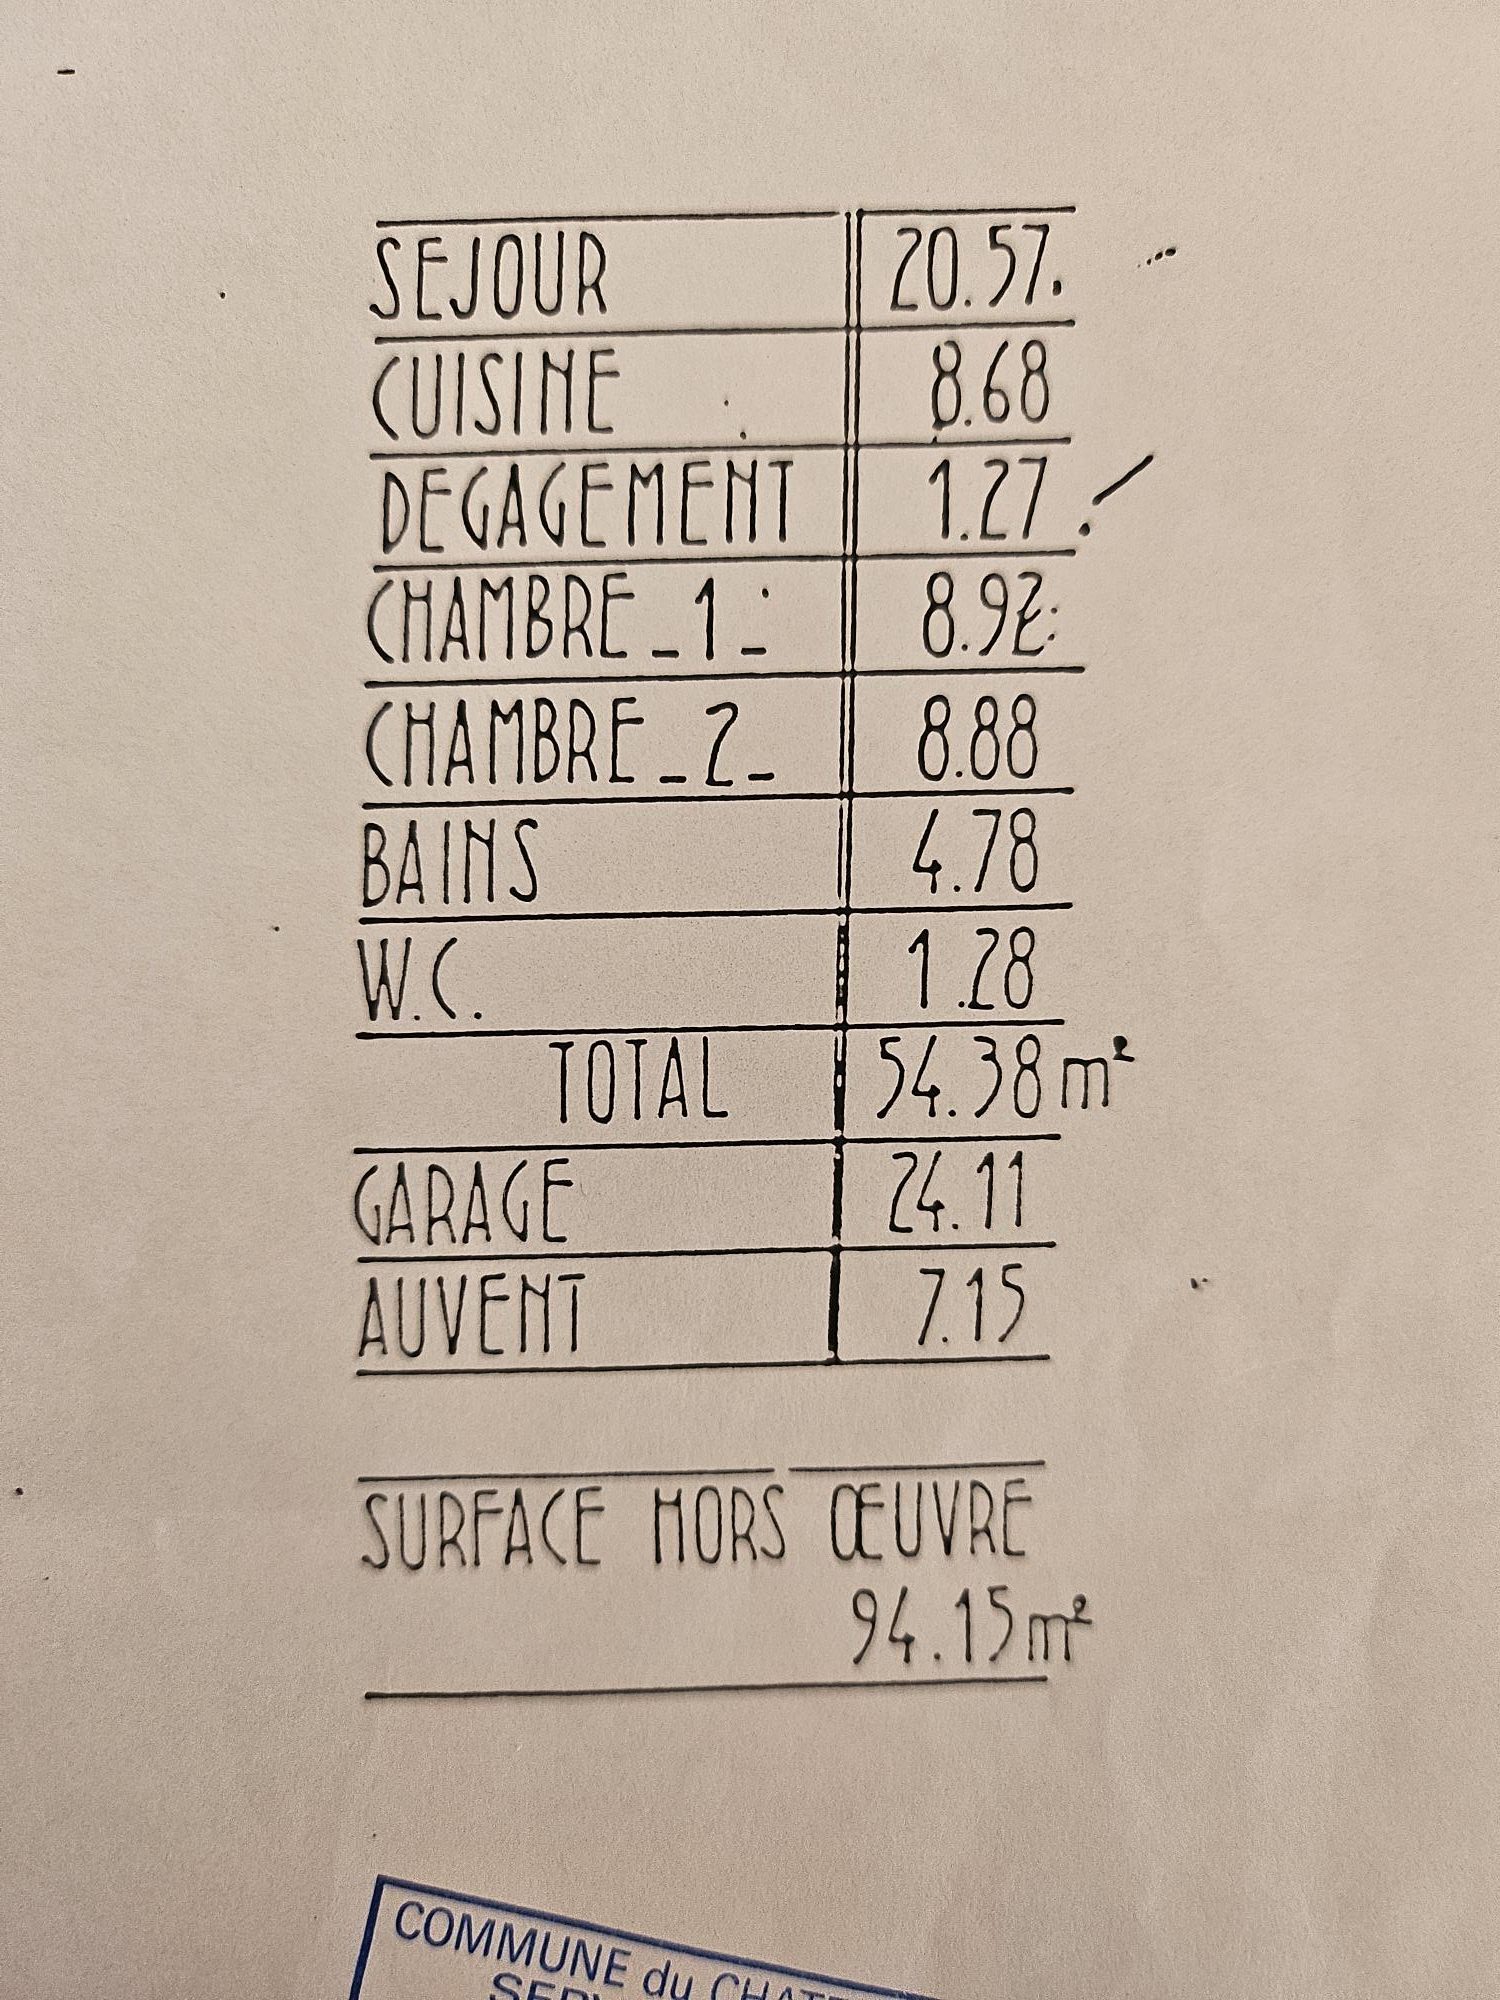 SEJOUR 20.57
CUISINE 8.68
DEGAGEMENT 1.27
CHAMBRE_1_ 8.92
CHAMBRE_2_ 8.88
BAINS 4.78
W.C. 1.28
TOTAL 54.38 m²
GARAGE 24.11
AUVENT 7.15
SURFACE HORS ŒUVRE
94.15 m²
COMMUNE du